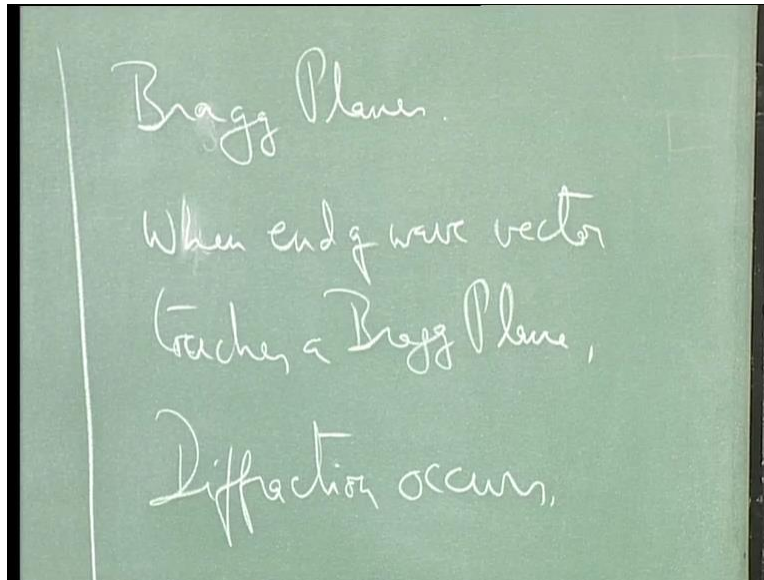 Bragg Planes.
When end of wave vector
touches a Bragg Plane,
Diffraction occurs.